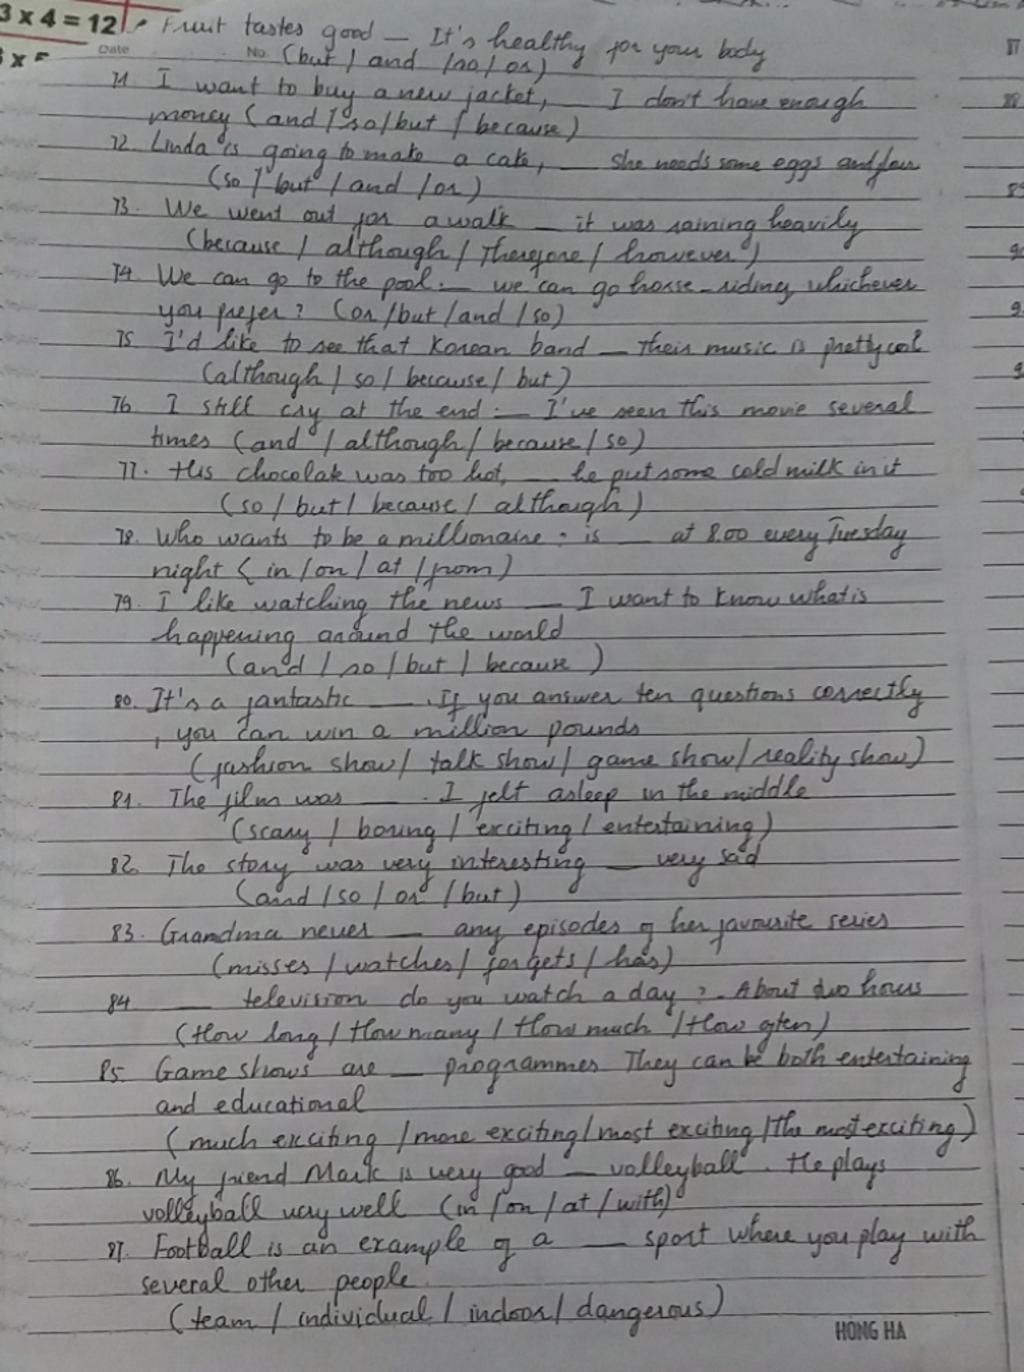 3 x 4 = 12
Fruit tastes good — It's healthy for your body
Date No.
(but / and /so / or)
71. I want to buy a new jacket, — I don't have enough
money (and / so/but / because)
72. Linda is going to make a cake, — She needs some eggs and
(so / but / and /or)
73. We went out for a walk — it was raining heavily
(because / although / Therefore / however)
74. We can go to the pool. — we can go horse-riding, whichever
you prefer? (or /but /and /so)
75. I'd like to see that Korean band — Their music is pretty cool
(although / so / because / but)
76. I still cry at the end. — I've seen this movie several
times (and / although / because / so)
77. His chocolate was too hot, — he put some cold milk in it
(so / but / because / although)
78. Who wants to be a millionaire : is — at 8.00 every Tuesday
night ( in / on / at / from)
79. I like watching the news — I want to know what is
happening around the world
(and / so / but / because )
80. It's a fantastic — . If you answer ten questions correctly
, you can win a million pounds
(fashion show/ talk show/ game show/ reality show)
81. The film was — . I felt asleep in the middle
(scary / boring / exciting / entertaining)
82. The story was very interesting — very sad
(and /so / or /but)
83. Grandma never — any episodes of her favourite series
(misses / watches/ forgets / has)
84 — television do you watch a day ?. About two hours
(How long / How many / How much / How often)
85. Game shows are — programmes They can be both entertaining
and educational
(much exciting /more exciting/most exciting /the most exciting)
86. My friend Mark is very good — volleyball. He plays
volleyball very well (in /on / at / with)
87. Football is an example of a — sport where you play with
several other people.
(team / individual / indoor/ dangerous)
HONG HA